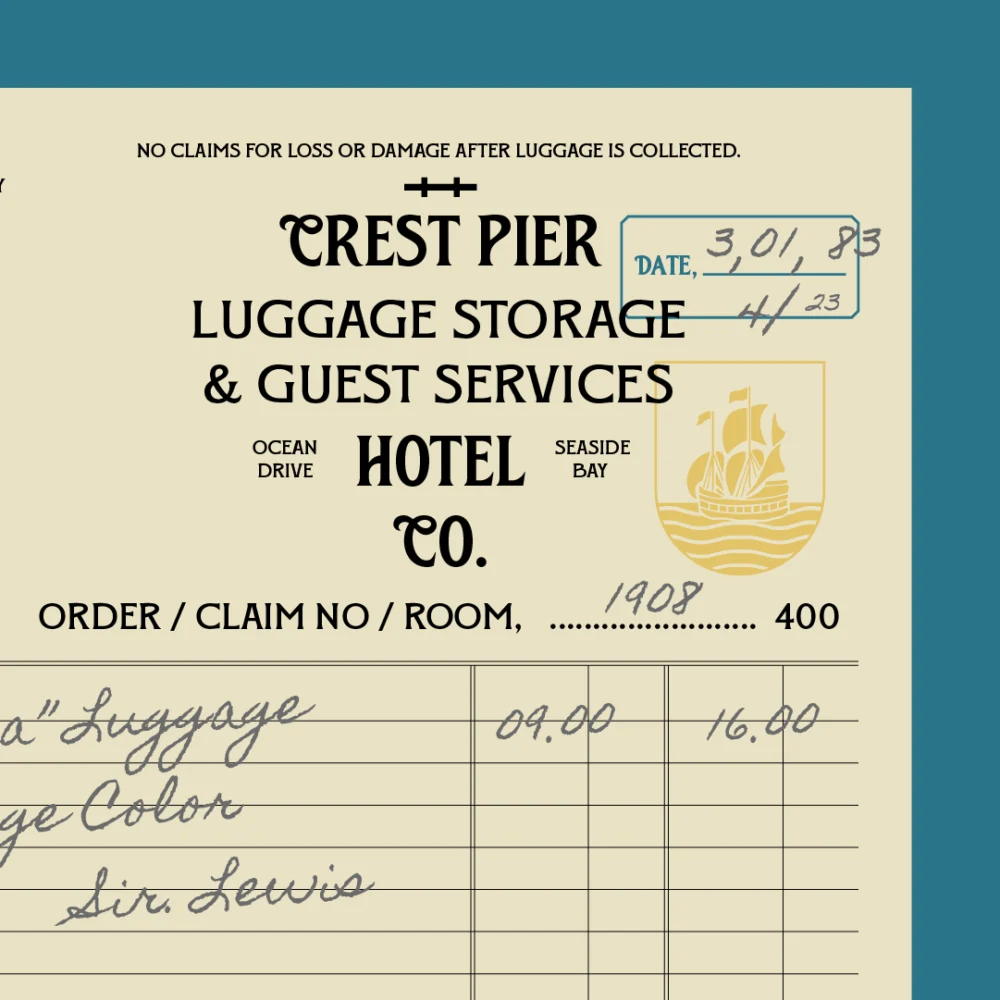 NO CLAIMS FOR LOSS OR DAMAGE AFTER LUGGAGE IS COLLECTED.
CREST PIER
DATE, 3,01, 83
4/23
LUGGAGE STORAGE
& GUEST SERVICES
OCEAN DRIVE
HOTEL
SEASIDE BAY
CO.
ORDER / CLAIM NO / ROOM, 1908 400
a" Luggage 09.00 16.00
ge Color
Sir. Lewis